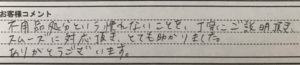 お客様コメント
不用品処分という慣れないことを、丁寧にご説明頂き、
スムーズに対応頂き、とても助かりました。
ありがとうございます。